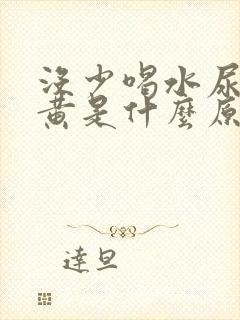 沒少喝水尿
黃是什麼原
達旦